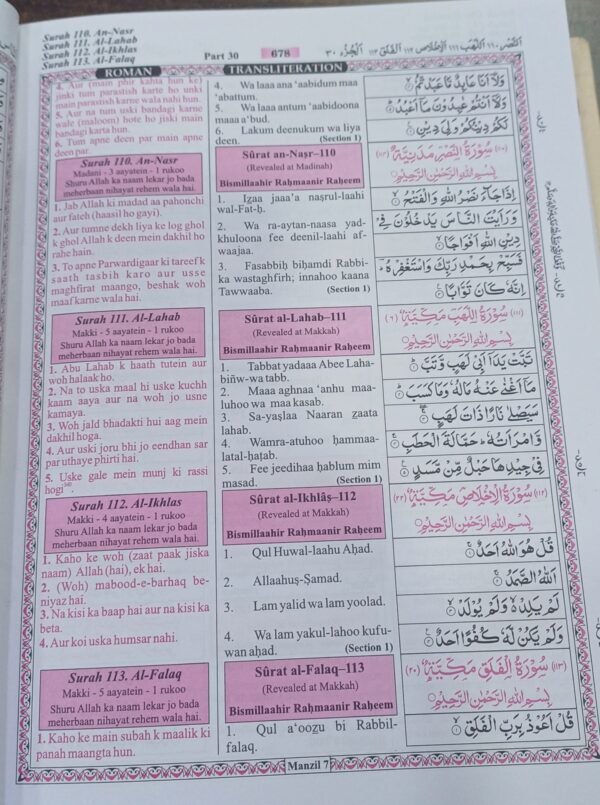 Surah 110. An-Nasr
Surah 111. Al-Lahab
Surah 112. Al-Ikhlas
Surah 113. Al-Falaq
Part 30
678
النَّصر ١١٠ اللَّهَب ١١١ الإخلاص ١١٢ الفَلَق ١١٣ الجُزء ٣٠
ROMAN
TRANSLITERATION
4. Aur (main phir kahta hun ke)
jinki tum parastish karte ho unki
main parastish karne wala nahi hun.
5. Aur na tum uski bandagi karne
wale (maloom) hote ho jiski main
bandagi karta hun.
6. Tum apne deen par main apne
deen par.
Surah 110. An-Nasr
Madani - 3 aayatein - 1 rukoo
Shuru Allah ka naam lekar jo bada
meherbaan nihayat rehem wala hai.
1. Jab Allah ki madad aa pahonchi
aur fateh (haasil ho gayi).
2. Aur tumne dekh liya ke log ghol
k ghol Allah k deen mein dakhil ho
rahe hain.
3. To apne Parwardigaar ki tareef k
saath tasbih karo aur usse
maghfirat maango, beshak woh
maaf karne wala hai.
Surah 111. Al-Lahab
Makki - 5 aayatein - 1 rukoo
Shuru Allah ka naam lekar jo bada
meherbaan nihayat rehem wala hai.
1. Abu Lahab k haath tutein aur
woh halaak ho.
2. Na to uska maal hi uske kuchh
kaam aaya aur na woh jo usne
kamaya.
3. Woh jald bhadakti hui aag mein
dakhil hoga.
4. Aur uski joru bhi jo eendhan sar
par uthaye phirti hai.
5. Uske gale mein munj ki rassi
hogi
Surah 112. Al-Ikhlas
Makki - 4 aayatein - 1 rukoo
Shuru Allah ka naam lekar jo bada
meherbaan nihayat rehem wala hai.
1. Kaho ke woh (zaat paak jiska
naam) Allah (hai), ek hai.
2. (Woh) mabood-e-barhaq be-
niyaz hai.
3. Na kisi ka baap hai aur na kisi ka
beta.
4. Aur koi uska humsar nahi.
Surah 113. Al-Falaq
Makki - 5 aayatein - 1 rukoo
Shuru Allah ka naam lekar jo bada
meherbaan nihayat rehem wala hai.
1. Kaho ke main subah k maalik ki
panah maangta hun.
4. Wa laaa ana 'aabidum maa
'abattum.
5. Wa laaa antum 'aabidoona
maaa a'bud.
6. Lakum deenukum wa liya
deen. (Section 1)
Sûrat an-Naṣr–110
(Revealed at Madinah)
Bismillaahir Raḥmaanir Raḥeem
1. Izaa jaaa'a naṣrul-laahi
wal-Fat-ḥ.
2. Wa ra-aytan-naasa yad-
khuloona fee deenil-laahi af-
waajaa.
3. Fasabbiḥ biḥamdi Rabbi-
ka wastaghfirh; innahoo kaana
Tawwaaba. (Section 1)
Sûrat al-Lahab–111
(Revealed at Makkah)
Bismillaahir Raḥmaanir Raḥeem
1. Tabbat yadaaa Abee Laha-
biñw-wa tabb.
2. Maaa aghnaa 'anhu maa-
luhoo wa maa kasab.
3. Sa-yaṣlaa Naaran zaata
lahab.
4. Wamra-atuhoo ḥammaa-
latal-ḥaṭab.
5. Fee jeedihaa ḥablum mim
masad. (Section 1)
Sûrat al-Ikhlâṣ–112
(Revealed at Makkah)
Bismillaahir Raḥmaanir Raḥeem
1. Qul Huwal-laahu Aḥad.
2. Allaahuṣ-Ṣamad.
3. Lam yalid wa lam yoolad.
4. Wa lam yakul-lahoo kufu-
wan aḥad. (Section 1)
Sûrat al-Falaq–113
(Revealed at Makkah)
Bismillaahir Raḥmaanir Raḥeem
1. Qul a'oozu bi Rabbil-
falaq.
وَلَآ اَنَا عَابِدٌ مَّا عَبَدْتُّمْ ۙ
وَلَآ اَنْتُمْ عٰبِدُوْنَ مَآ اَعْبُدُ ؕ
لَكُمْ دِيْنُكُمْ وَلِيَ دِيْنِ
سُوْرَةُ النَّصْرِ مَدَنِيَّةٌ
بِسْمِ اللهِ الرَّحْمٰنِ الرَّحِيْمِ
اِذَا جَآءَ نَصْرُ اللهِ وَالْفَتْحُ ۙ
وَرَاَيْتَ النَّاسَ يَدْخُلُوْنَ فِيْ
دِيْنِ اللهِ اَفْوَاجًا ۙ
فَسَبِّحْ بِحَمْدِ رَبِّكَ وَاسْتَغْفِرْهُ ؔ
اِنَّهٗ كَانَ تَوَّابًا
(١١١) سُوْرَةُ اللَّهَبِ مَكِّيَّةٌ (٦)
بِسْمِ اللهِ الرَّحْمٰنِ الرَّحِيْمِ
تَبَّتْ يَدَآ اَبِيْ لَهَبٍ وَّتَبَّ ؕ
مَآ اَغْنٰى عَنْهُ مَالُهٗ وَمَا كَسَبَ ؕ
سَيَصْلٰى نَارًا ذَاتَ لَهَبٍ
وَّامْرَاَتُهٗ ؕ حَمَّالَةَ الْحَطَبِ
فِيْ جِيْدِهَا حَبْلٌ مِّنْ مَّسَدٍ
(١١٢) سُوْرَةُ الْاِخْلَاصِ مَكِّيَّةٌ (٢٢)
بِسْمِ اللهِ الرَّحْمٰنِ الرَّحِيْمِ
قُلْ هُوَ اللهُ اَحَدٌ
اَللهُ الصَّمَدُ
لَمْ يَلِدْ ۙ وَلَمْ يُوْلَدْ
وَلَمْ يَكُنْ لَّهٗ كُفُوًا اَحَدٌ
(١١٣) سُوْرَةُ الْفَلَقِ مَكِّيَّةٌ (٢٠)
بِسْمِ اللهِ الرَّحْمٰنِ الرَّحِيْمِ
قُلْ اَعُوْذُ بِرَبِّ الْفَلَقِ
Manzil 7